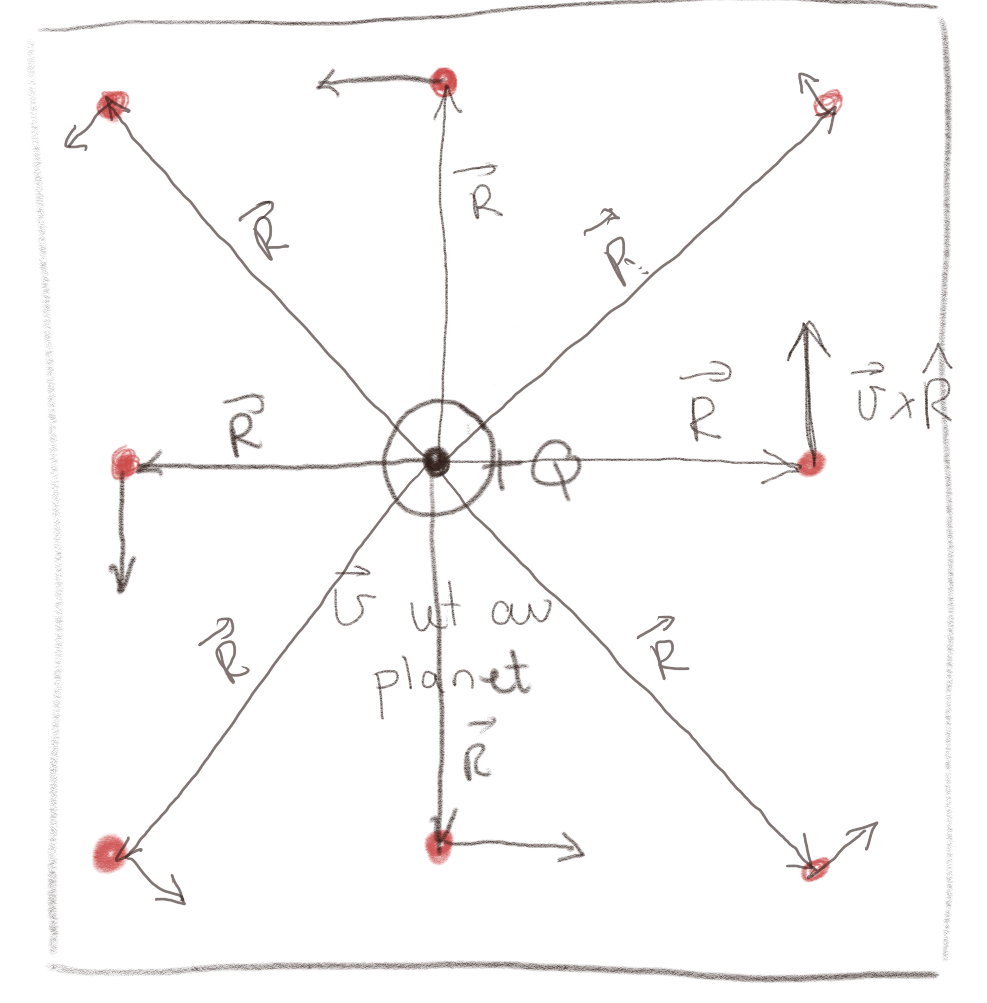 R⃗
R⃗
R⃗
R⃗
R⃗
v⃗ × R̂
+Q
v⃗ ut av
planet
R⃗
R⃗
R⃗